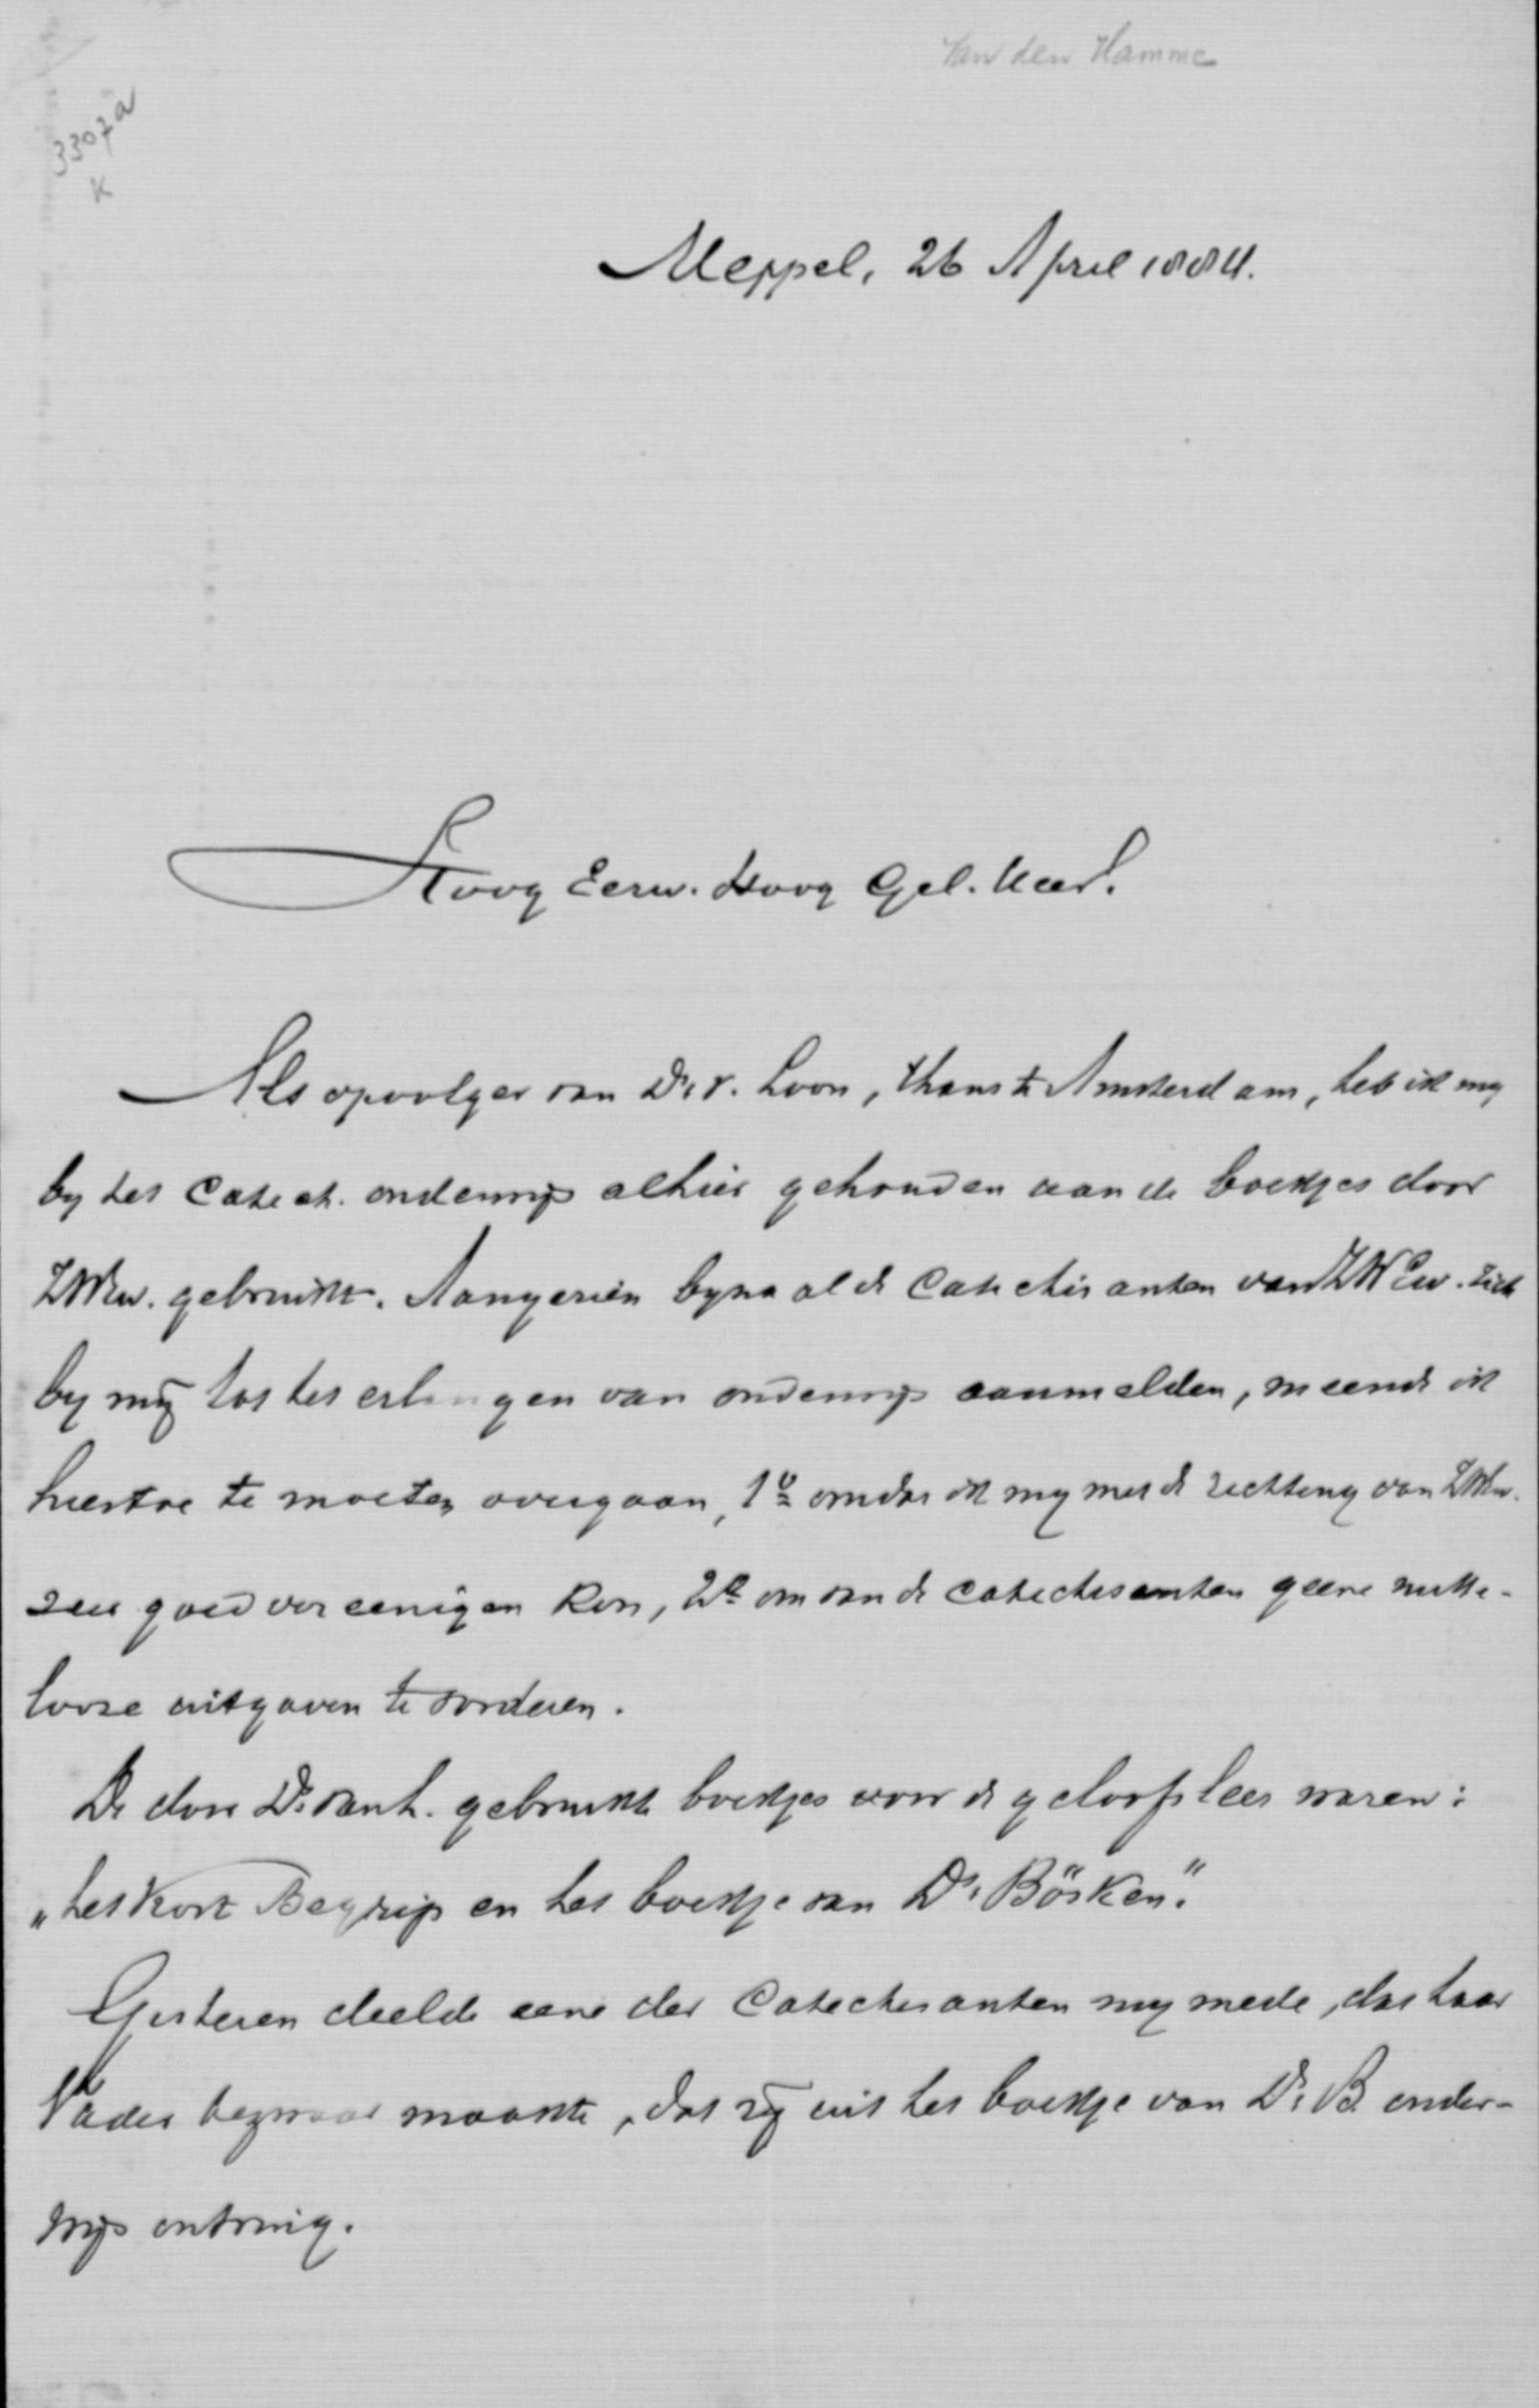 Van den Hamme
3307a
K
Meppel, 26 April 1884.
Hoog Eerw. Hoog Gel. Heer!
Als opvolger van Ds. v. Loon, thans te Amsterdam, heb ik my
by het Catech. onderwijs alhier gehouden aan de boekjes door
ZWEw. gebruikt. Aangezien byna al de Catechisanten van ZWEw. zich
by mij tot het erlangen van onderwijs aanmelden, meende ik
hiertoe te moeten overgaan, 1o omdat ik my met de richting van ZWEw.
zeer goed vereenigen kon, 2o om van de catechisanten geene nutte-
looze uitgaven te vorderen.
De door Ds. van L. gebruikte boekjes voor de geloofsleer waren:
„het Kort Begrip en het boekje van Ds. Bösken."
Gisteren deelde eene der Catechisanten my mede, dat haar
Vader bezwaar maakte, dat zij uit het boekje van Ds. B. onder-
wijs ontving.